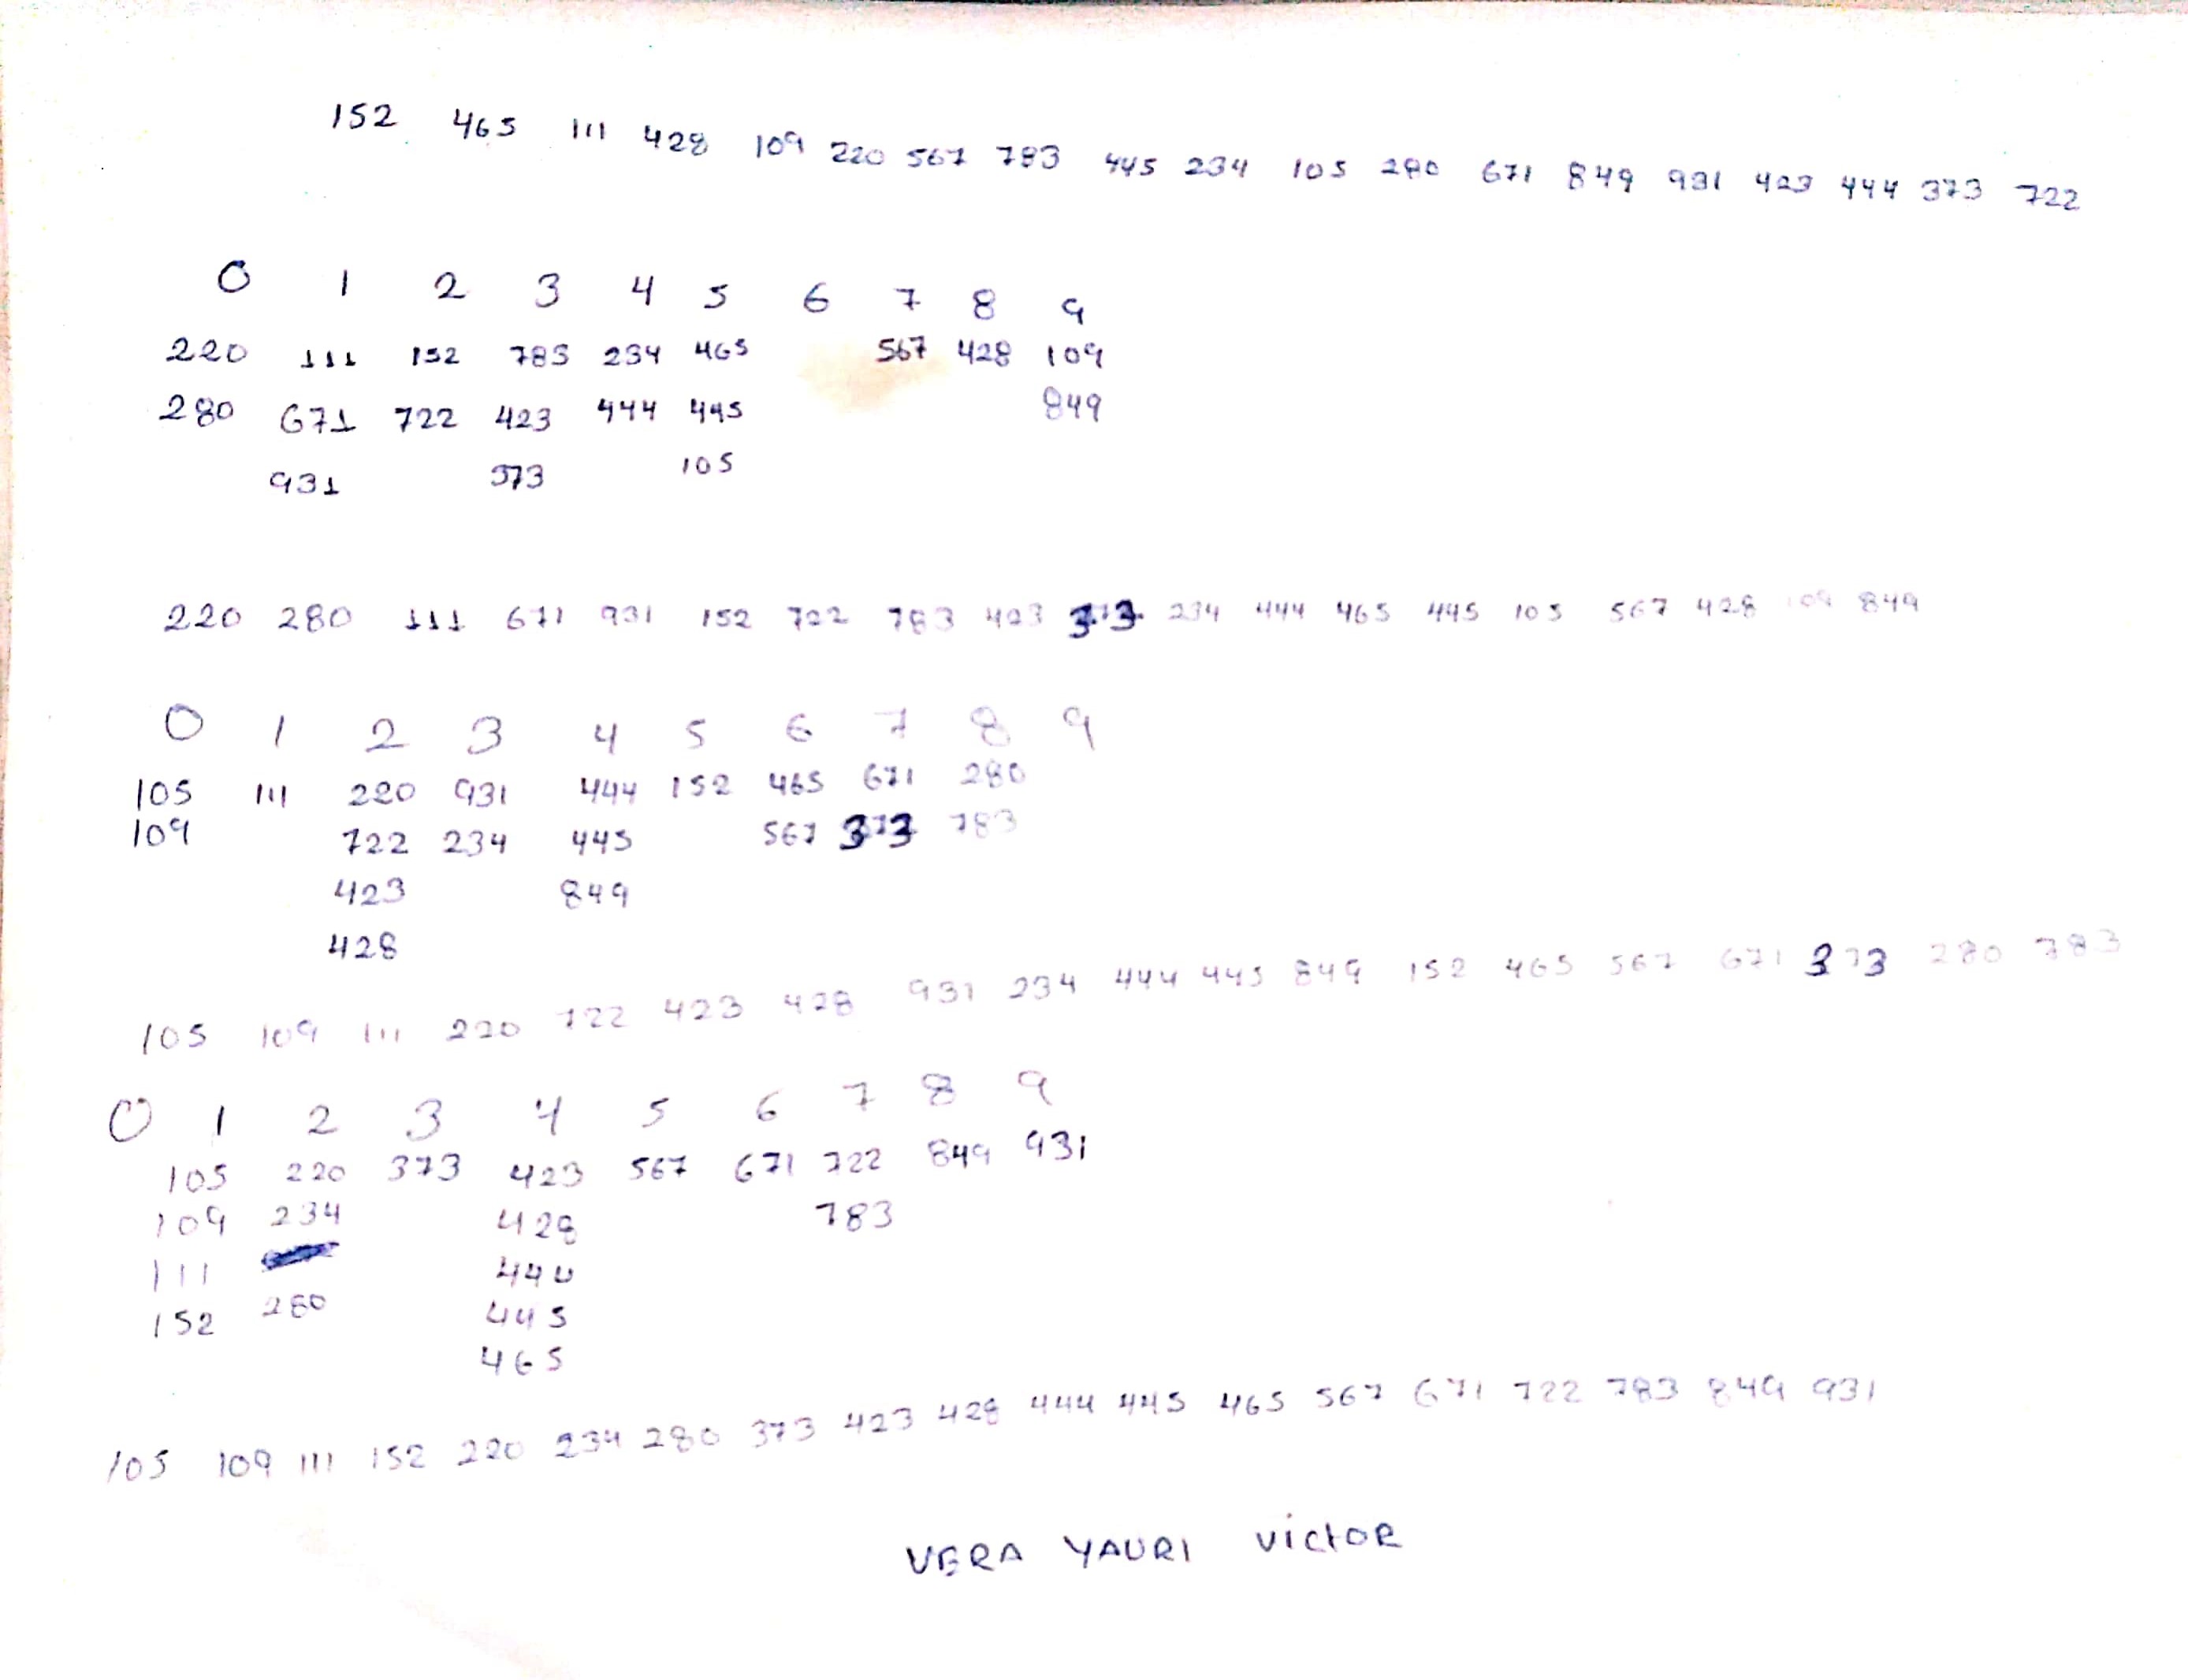 152 465 111 428 109 220 567 783 445 234 105 280 671 849 931 423 444 373 722
0 1 2 3 4 5 6 7 8 9
220 111 152 783 234 465 567 428 109
280 671 722 423 444 445 849
931 373 105
220 280 111 671 931 152 722 783 423 373 234 444 465 445 105 567 428 109 849
0 1 2 3 4 5 6 7 8 9
105 111 220 931 444 152 465 671 280
109 722 234 445 567 373 783
423 849
428
105 109 111 220 722 423 428 931 234 444 445 849 152 465 567 671 373 280 783
0 1 2 3 4 5 6 7 8 9
105 220 373 423 567 671 722 849 931
109 234 428 783
111 444
152 280 445
465
105 109 111 152 220 234 280 373 423 428 444 445 465 567 671 722 783 849 931
VERA YAURI VICTOR